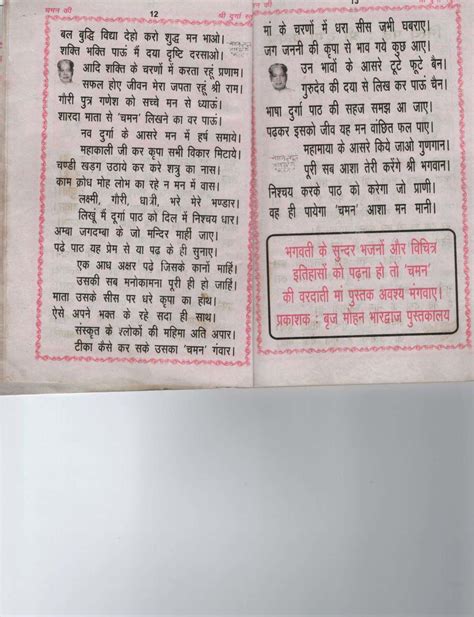 चमन की
12
श्री दुर्गा
बल बुद्धि विद्या देहो करो शुद्ध मन भाओ।
शक्ति भक्ति पाऊं मैं दया दृष्टि दरसाओ।
आदि शक्ति के चरणों में करता रहूं प्रणाम।
सफल होए जीवन मेरा जपता रहूं श्री राम।
गौरी पुत्र गणेश को सच्चे मन से ध्याऊं।
शारदा माता से 'चमन' लिखने का वर पाऊं।
नव दुर्गा के आसरे मन में हर्ष समाये।
महाकाली जी कर कृपा सभी विकार मिटाये।
चण्डी खडग उठाये कर करे शत्रु का नास।
काम क्रोध मोह लोभ का रहे न मन में वास।
लक्ष्मी, गौरी, धात्री, भरे मेरे भण्डार।
लिखूं मैं दुर्गा पाठ को दिल में निश्चय धार।
अम्बा जगदम्बा के जो मन्दिर माहीं जाए।
पढ़े पाठ यह प्रेम से या पढ़ के ही सुनाए।
एक आध अक्षर पढ़े जिसके कानों माहिं।
उसकी सब मनोकामना पूरी ही हो जाहिं।
माता उसके सीस पर धरे कृपा का हाथ।
ऐसे अपने भक्त के रहे सदा ही साथ।
संस्कृत के श्लोकों की महिमा अति अपार।
टीका कैसे कर सके उसका 'चमन' गंवार।
13
मां के चरणों में धरा सीस जभी घबराए।
जग जननी की कृपा से भाव गये कुछ आए।
उन भावों के आसरे टूटे फूटे बैन।
गुरुदेव की दया से लिख कर पाऊं चैन।
भाषा दुर्गा पाठ की सहज समझ आ जाए।
पढ़कर इसको जीव यह मन वांछित फल पाए।
महामाया के आसरे किये जाओ गुणगान।
पूरी सब आशा तेरी करेंगे श्री भगवान।
निश्चय करके पाठ को करेगा जो प्राणी।
वह ही पायेगा 'चमन' आशा मन मानी।
भगवती के सुन्दर भजनों और विचित्र
इतिहासों को पढ़ना हो तो 'चमन'
की वरदाती मां पुस्तक अवश्य मंगवाएं।
प्रकाशक : बृज मोहन भारद्वाज पुस्तकालय